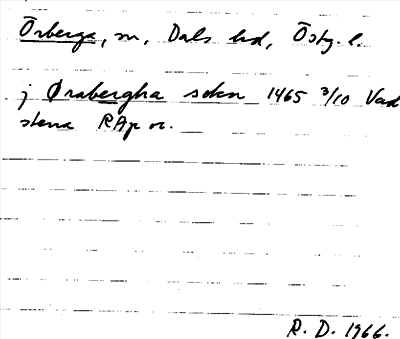 Örberga, sn, Dals hd, Östg. l.
j Ørabergha sokn 1465 3/10 Vad
stena RAp or.
R. D. 1966.